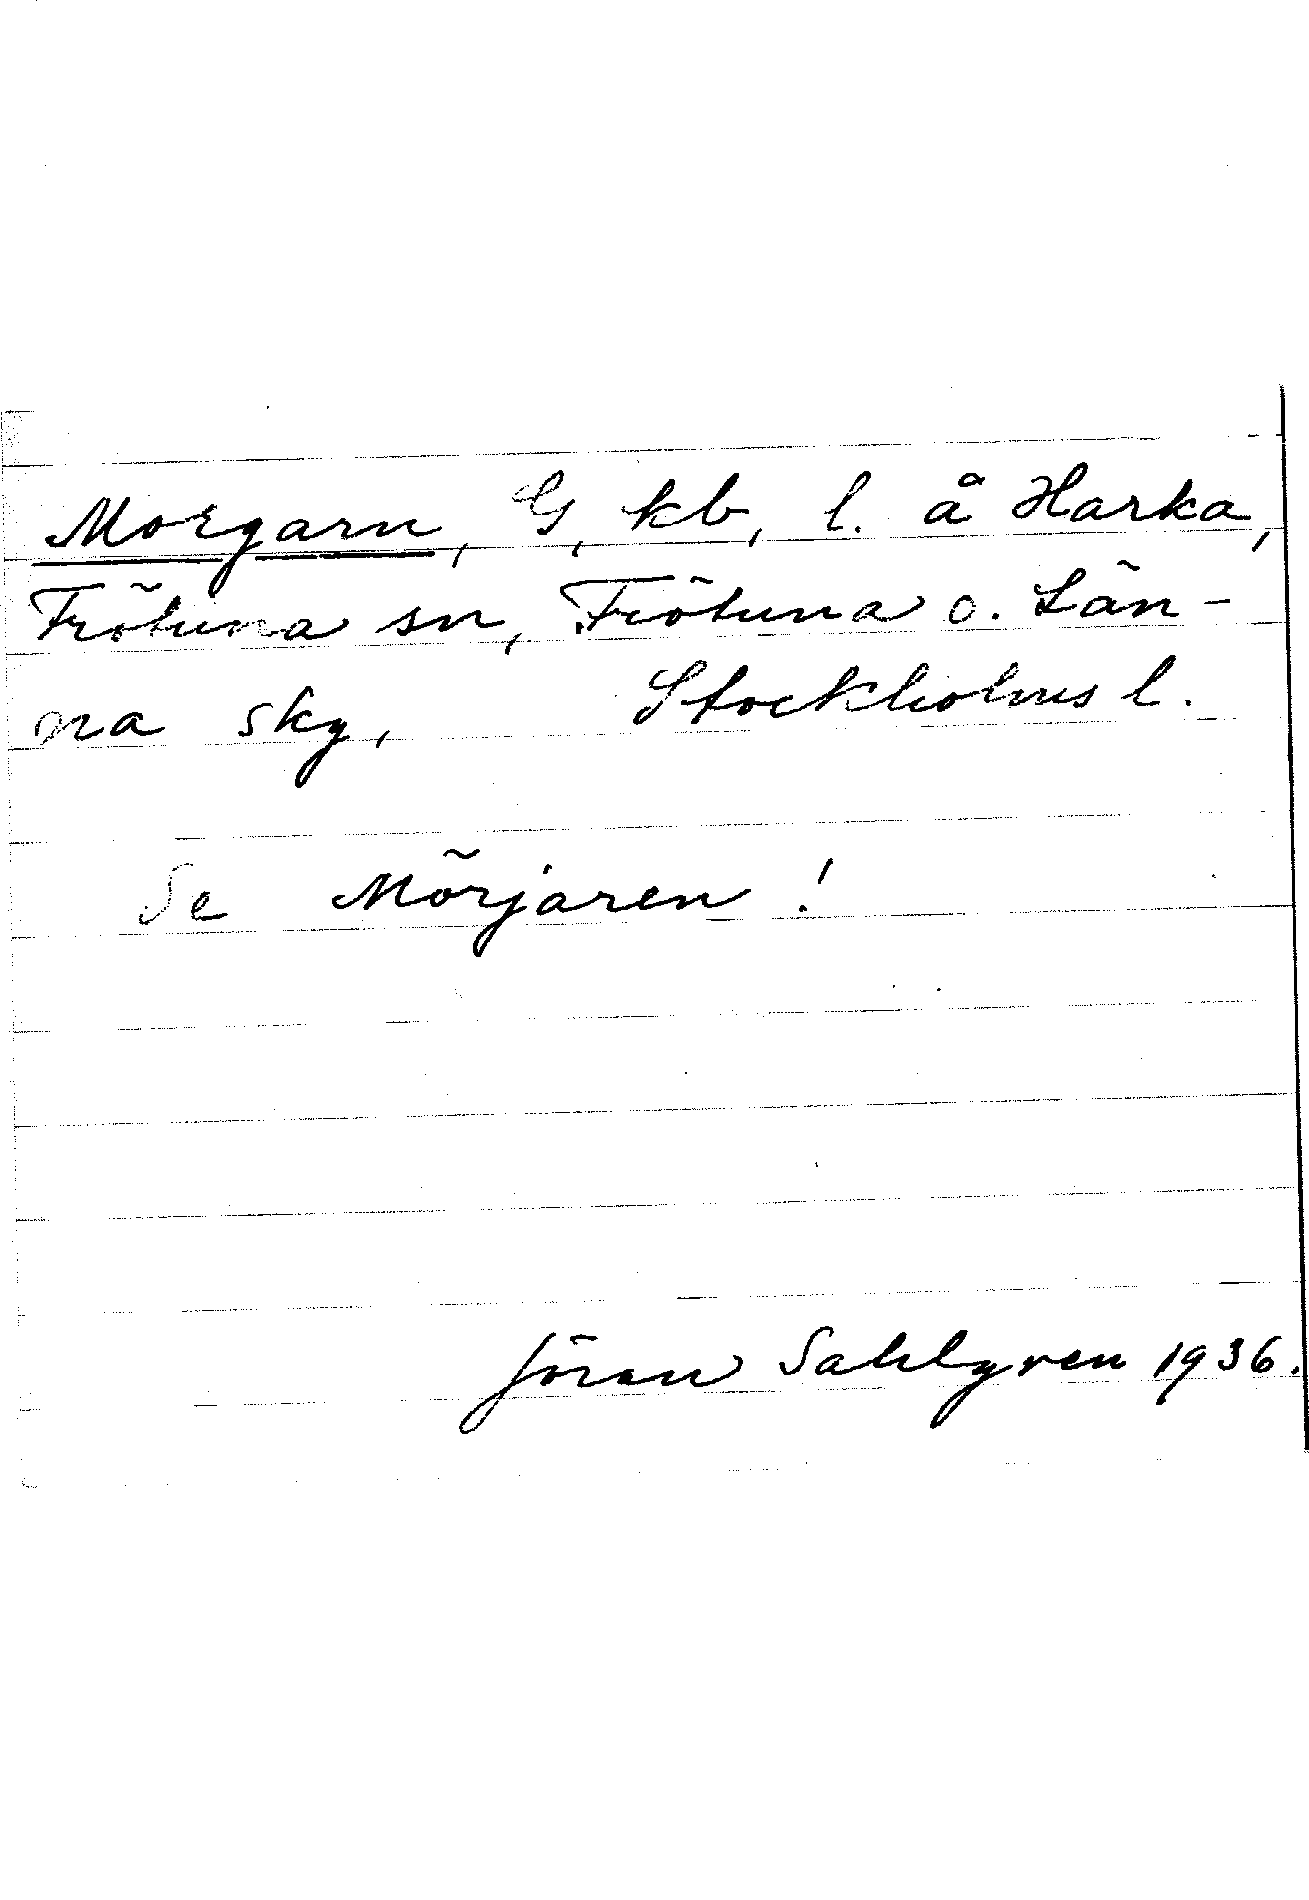 Morgarn, G, kb, l. å Harka,
Frötuna sn, Frötuna o. Län-
na sky, Stockholms l.
Se Mörjaren!
Jöran Sahlgren 1936.